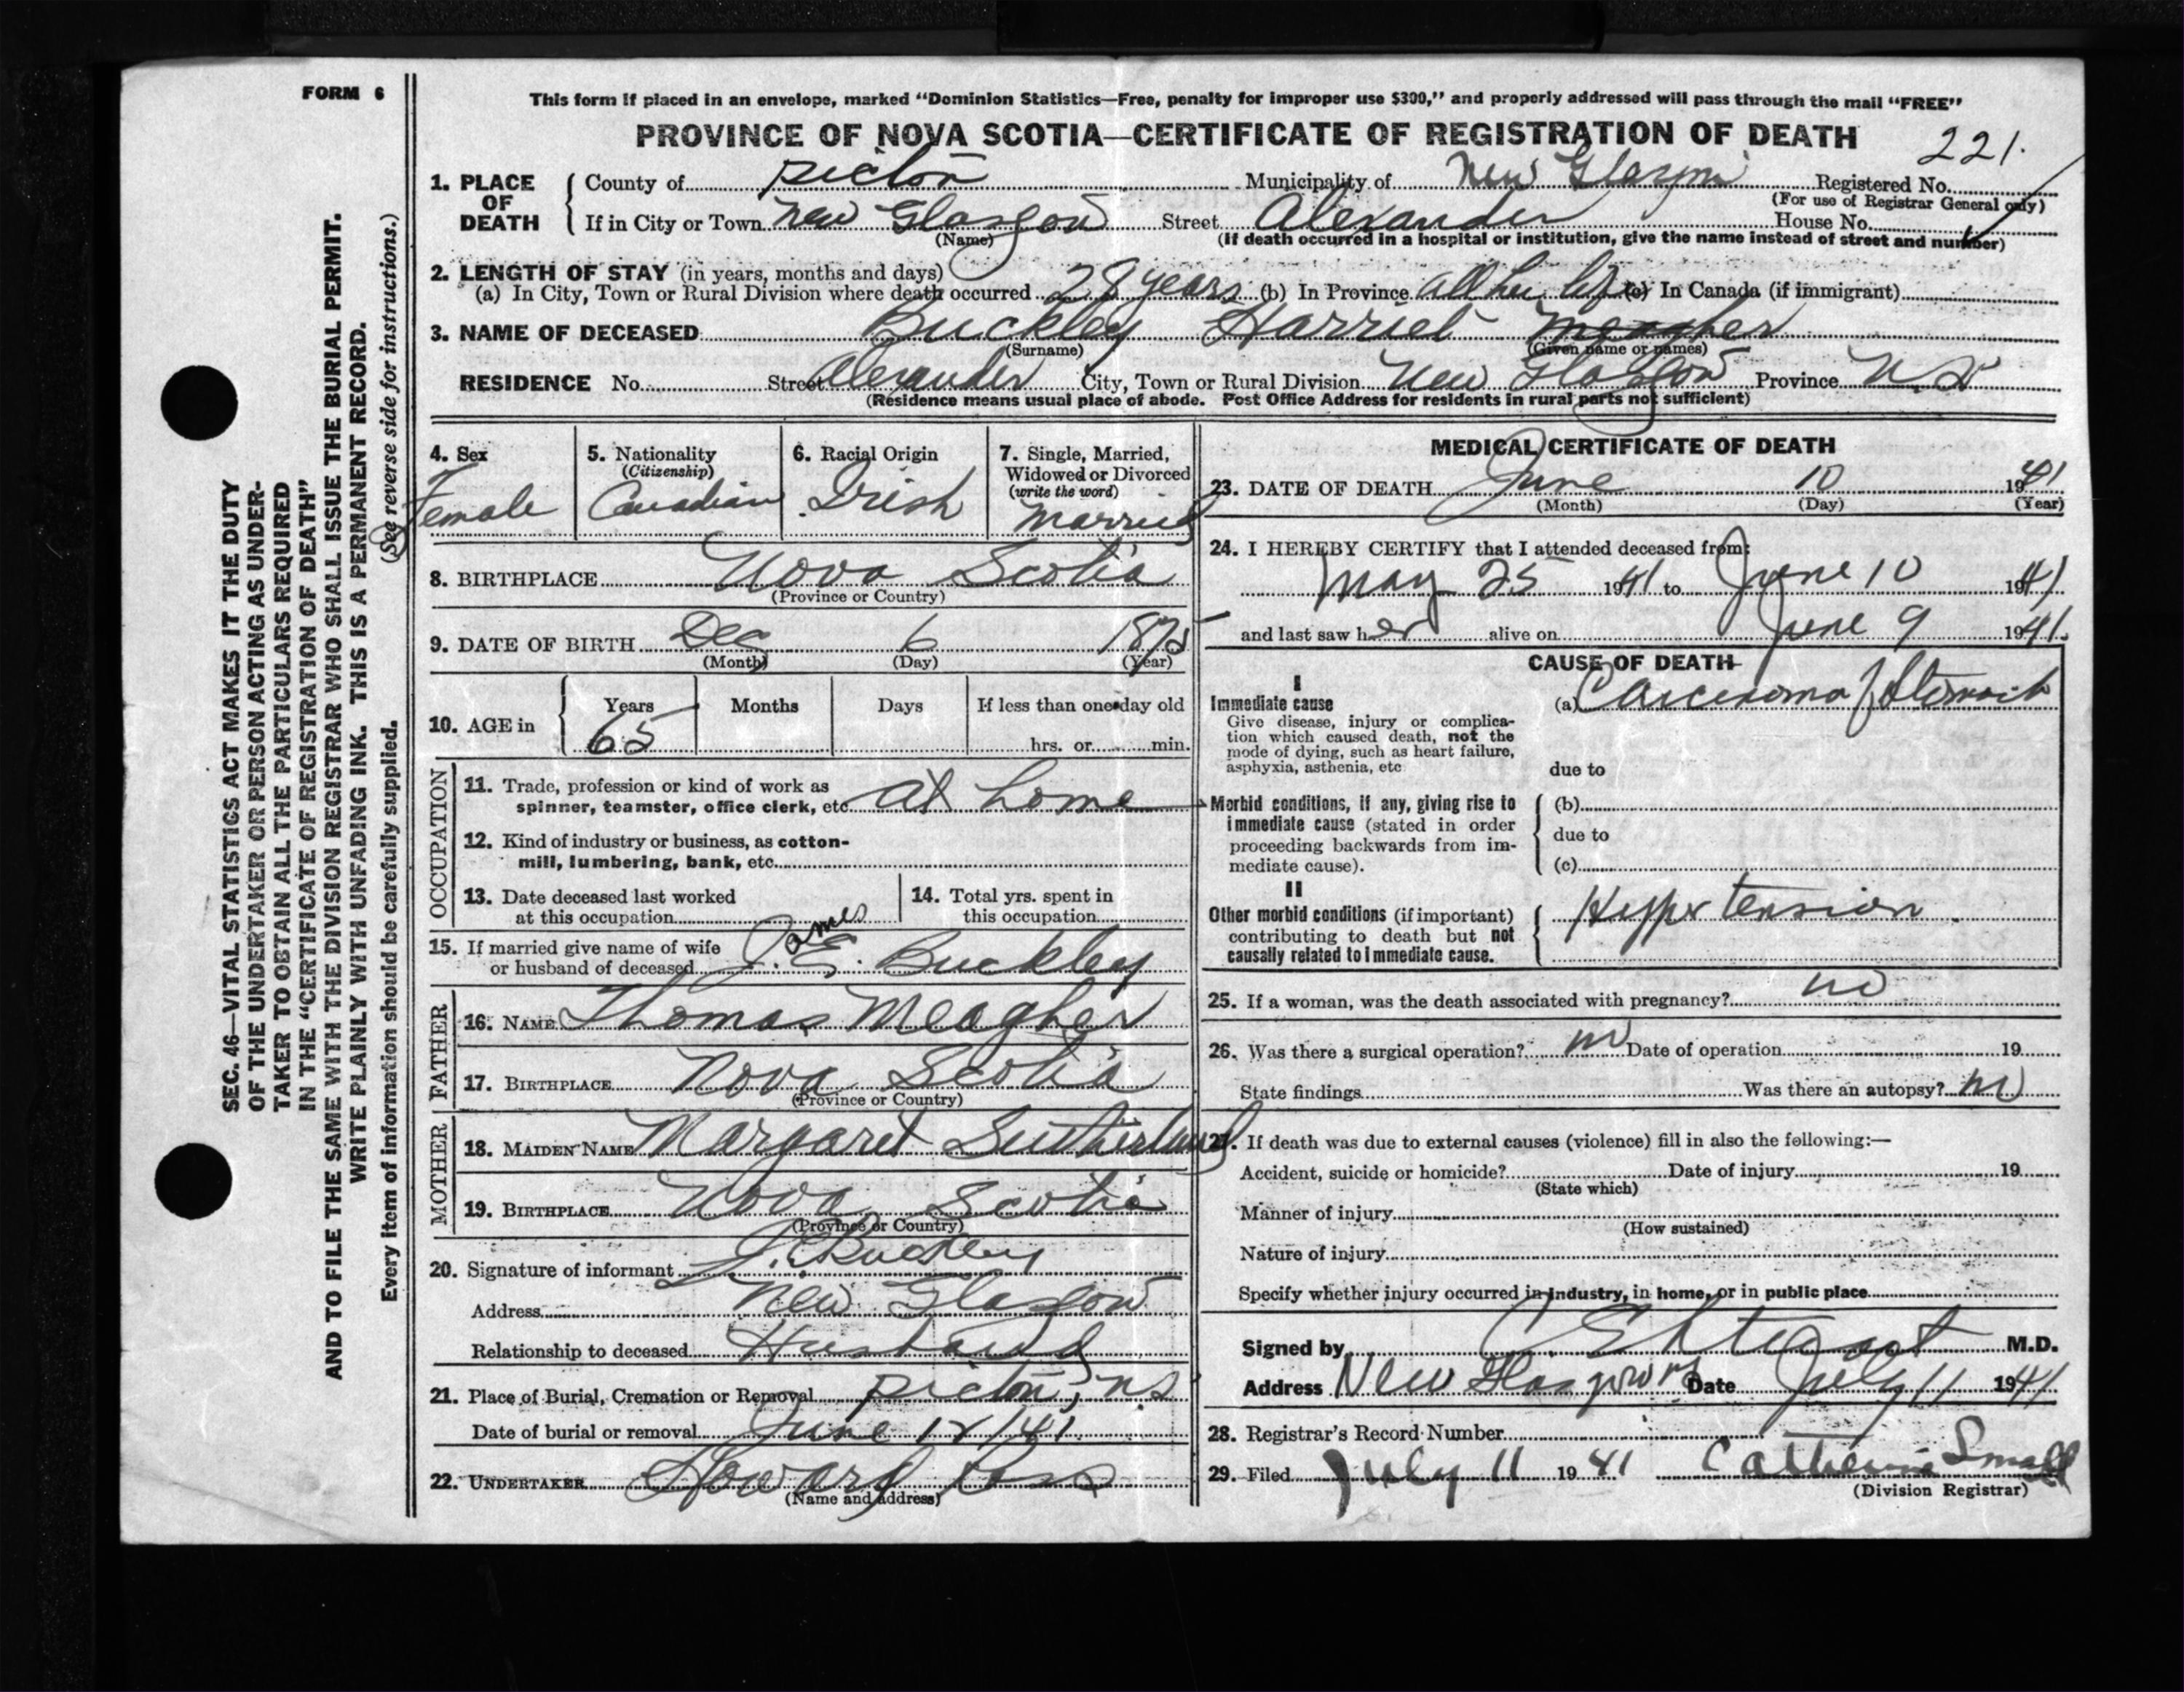 FORM 6
This form if placed in an envelope, marked "Dominion Statistics—Free, penalty for improper use $300," and properly addressed will pass through the mail "FREE"
PROVINCE OF NOVA SCOTIA—CERTIFICATE OF REGISTRATION OF DEATH
221.
1. PLACE OF DEATH { County of Pictou Municipality of New Glasgow Registered No.
(For use of Registrar General only)
If in City or Town New Glasgow Street Alexander House No.
(Name) (If death occurred in a hospital or institution, give the name instead of street and number)
2. LENGTH OF STAY (in years, months and days)
(a) In City, Town or Rural Division where death occurred 28 years (b) In Province all her life (c) In Canada (if immigrant)
3. NAME OF DECEASED Buckley Harriet Meagher
(Surname) (Given name or names)
RESIDENCE No. Street Alexander City, Town or Rural Division New Glasgow Province N S
(Residence means usual place of abode. Post Office Address for residents in rural parts not sufficient)
4. Sex
Female
5. Nationality
(Citizenship)
Canadian
6. Racial Origin
Irish
7. Single, Married,
Widowed or Divorced
(write the word)
Married
8. BIRTHPLACE Nova Scotia
(Province or Country)
9. DATE OF BIRTH Dec 6 1875
(Month) (Day) (Year)
10. AGE in { Years Months Days If less than one day old
65 hrs. or min.
OCCUPATION
11. Trade, profession or kind of work as
spinner, teamster, office clerk, etc. at home
12. Kind of industry or business, as cotton-
mill, lumbering, bank, etc.
13. Date deceased last worked
at this occupation
14. Total yrs. spent in
this occupation
15. If married give name of wife
or husband of deceased James E. Buckley
FATHER
16. NAME Thomas Meagher
17. BIRTHPLACE Nova Scotia
(Province or Country)
MOTHER
18. MAIDEN NAME Margaret Sutherland
19. BIRTHPLACE Nova Scotia
(Province or Country)
20. Signature of informant J. E. Buckley
Address New Glasgow
Relationship to deceased Husband
21. Place of Burial, Cremation or Removal Pictou, NS
Date of burial or removal June 12/41
22. UNDERTAKER Howard Ross
(Name and address)
MEDICAL CERTIFICATE OF DEATH
23. DATE OF DEATH June 10 1941
(Month) (Day) (Year)
24. I HEREBY CERTIFY that I attended deceased from:
May 25 1941 to June 10 1941
and last saw her alive on June 9 1941.
CAUSE OF DEATH
I
Immediate cause (a) Carcinoma of Stomach
Give disease, injury or complica-
tion which caused death, not the
mode of dying, such as heart failure,
asphyxia, asthenia, etc
due to
Morbid conditions, if any, giving rise to
immediate cause (stated in order
proceeding backwards from im-
mediate cause).
(b)
due to
(c)
II
Other morbid conditions (if important)
contributing to death but not
causally related to immediate cause.
Hypertension
25. If a woman, was the death associated with pregnancy? no
26. Was there a surgical operation? no Date of operation 19
State findings Was there an autopsy? no
27. If death was due to external causes (violence) fill in also the following:—
Accident, suicide or homicide? Date of injury 19
(State which)
Manner of injury
(How sustained)
Nature of injury
Specify whether injury occurred in industry, in home, or in public place
Signed by C. E. Stewart M.D.
Address New Glasgow NS Date July 11 1941
28. Registrar's Record Number
29. Filed July 11 1941 Catherine Small
(Division Registrar)
SEC. 46—VITAL STATISTICS ACT MAKES IT THE DUTY
OF THE UNDERTAKER OR PERSON ACTING AS UNDER-
TAKER TO OBTAIN ALL THE PARTICULARS REQUIRED
IN THE "CERTIFICATE OF REGISTRATION OF DEATH"
AND TO FILE THE SAME WITH THE DIVISION REGISTRAR WHO SHALL ISSUE THE BURIAL PERMIT.
WRITE PLAINLY WITH UNFADING INK. THIS IS A PERMANENT RECORD.
Every item of information should be carefully supplied. (See reverse side for instructions.)